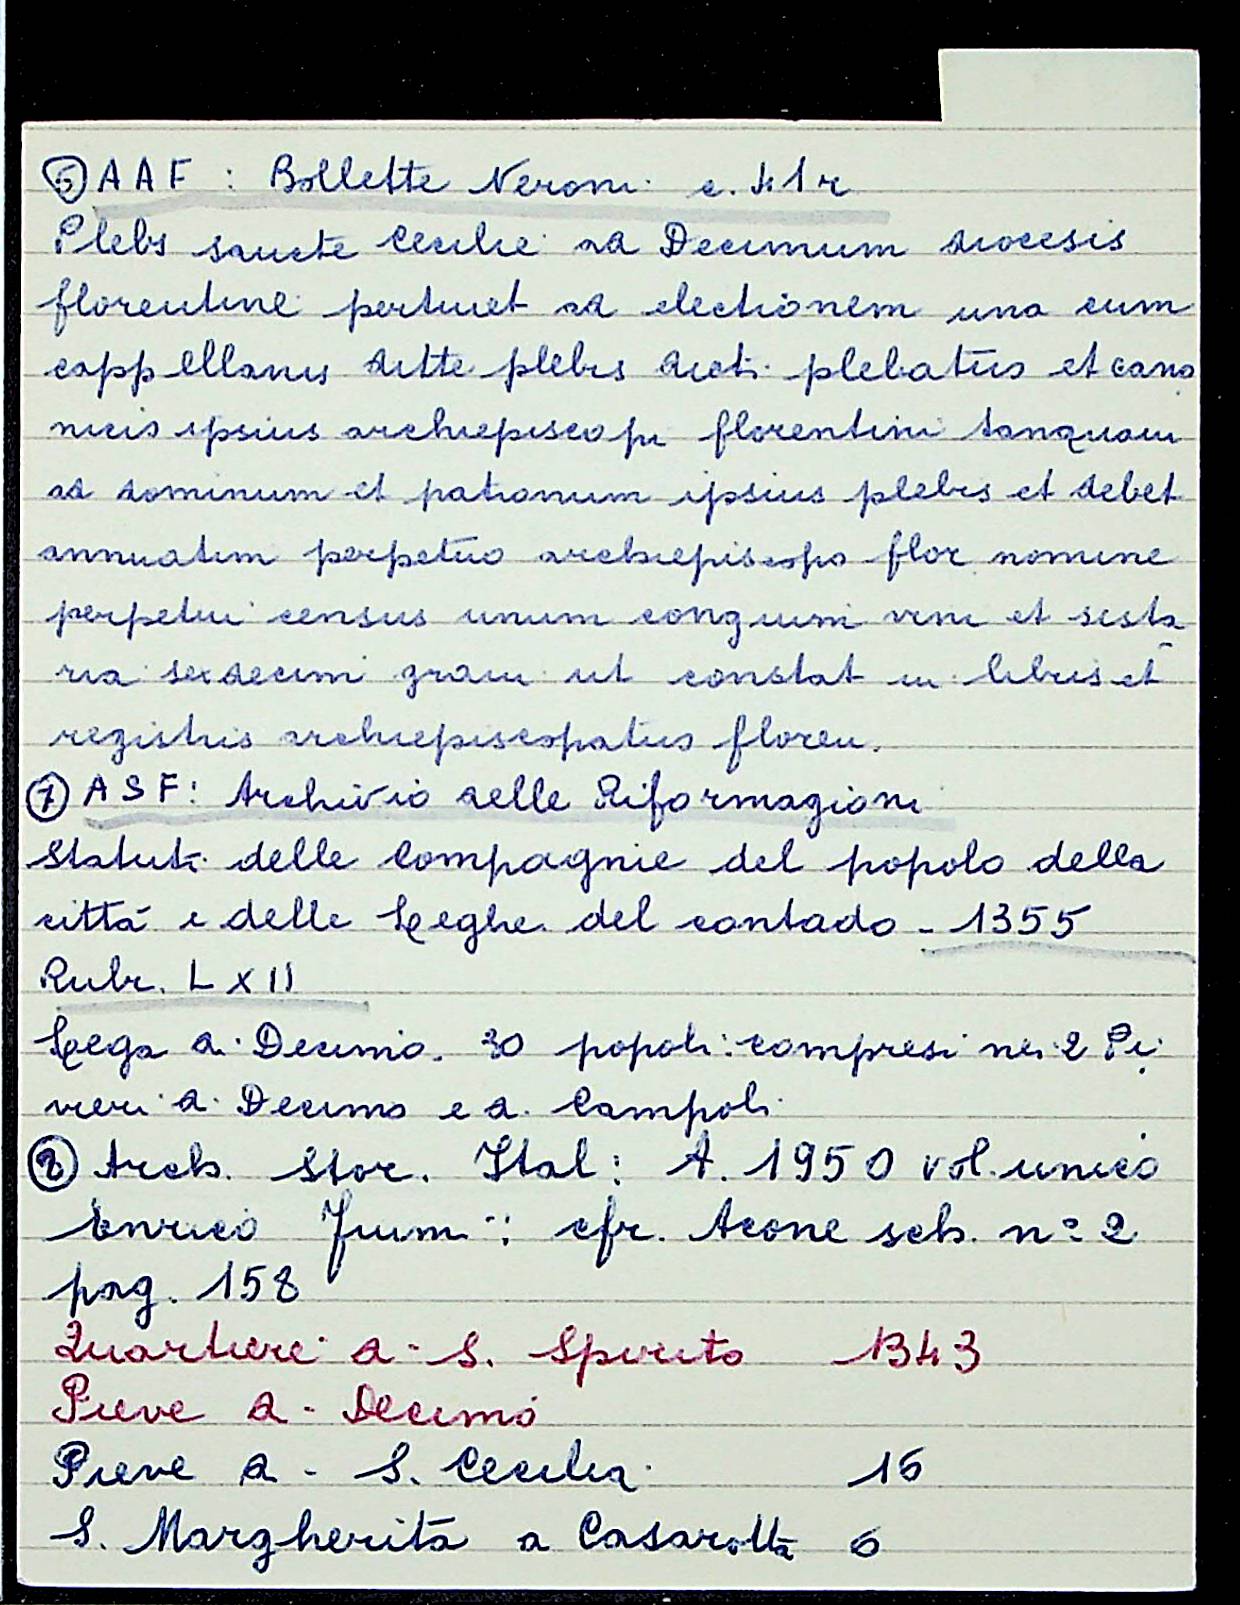 ⑥ AAF: Bollette Neroni c. 41r
Plebs sancte Cecilie ad Decimum diocesis
florentine pertinet ad electionem una cum
cappellanis ditte plebis dicti plebatus et cano
nicis ipsius archiepiscopi florentini tanquam
ad dominum et patronum ipsius plebis et debet
annuatim perpetuo archiepiscopo flor nomine
perpetui census unum congium vini et sesta
ria sexdecim grani ut constat in libris et
registris archiepiscopatus floren.
⑦ ASF: Archivio delle Riformagioni
Statuti delle Compagnie del popolo della
città e delle Leghe del contado - 1355
Rubr. LXII
Lega a Decimo. 30 popoli: compresi nei 2 Pi
vieri a Decimo e a Campoli
⑧ Arch. Stor. Ital: A. 1950 vol. unico
Enrico Fiumi: cfr. Acone sch. n° 2
pag. 158
Quartiere a - S. Spirito 1343
Pieve a - Decimo
Pieve a - S. Cecilia 16
S. Margherita a Casarotta 6